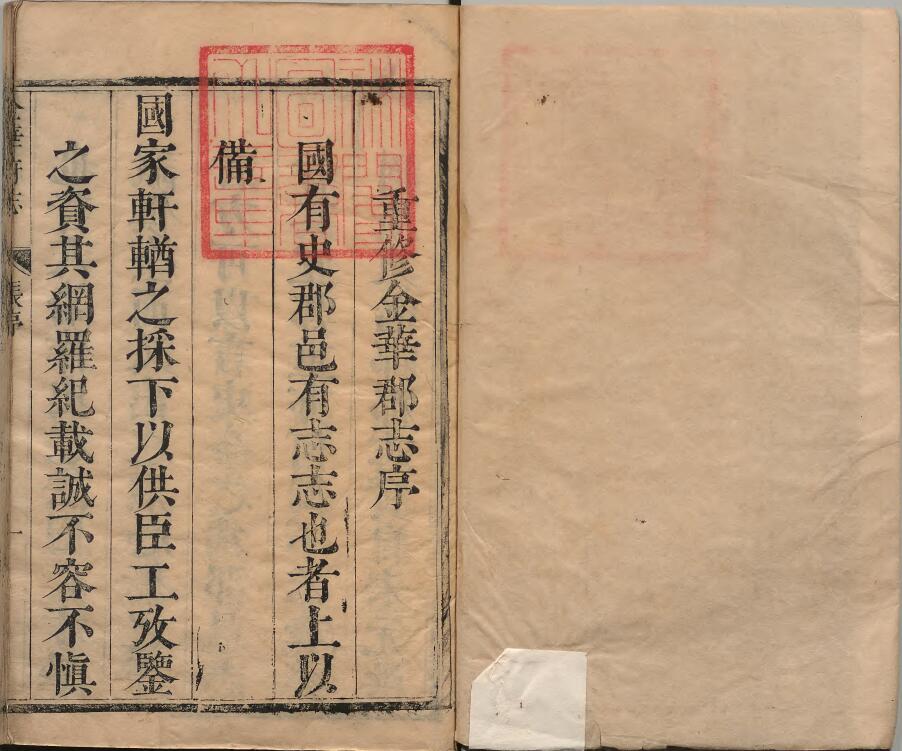 重修金華郡志序
國有史郡邑有志志也者上以
備
國家軒輶之採下以供臣工攷鑒
之資其網羅紀載誠不容不慎
張序
一